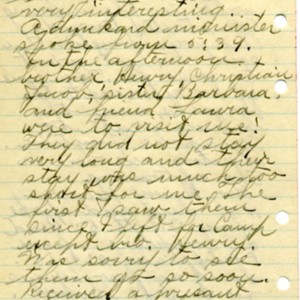 very interesting..
A dunkard minister
spoke from 5:39.
In the afternoon
brother Henry, Christian
Jacob, sister Barbara,
and friend Laura
were to visit me!
They did not stay
very long and their
stay was much too
short for me. The
first I saw them
since I left for Camp
except bro. Henry.
Was sorry to see
them go so soon.
Received a present